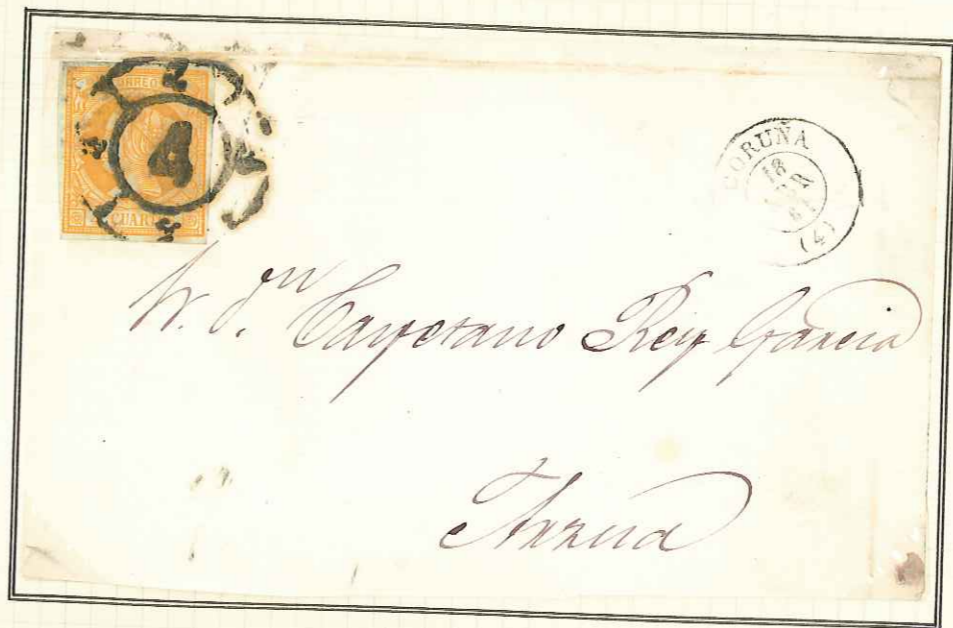 CORREOS
4
CUARTOS
CORUÑA
18
ABR
61
(4)
Sr. Dn Cayetano Rey Garcia
Arzua